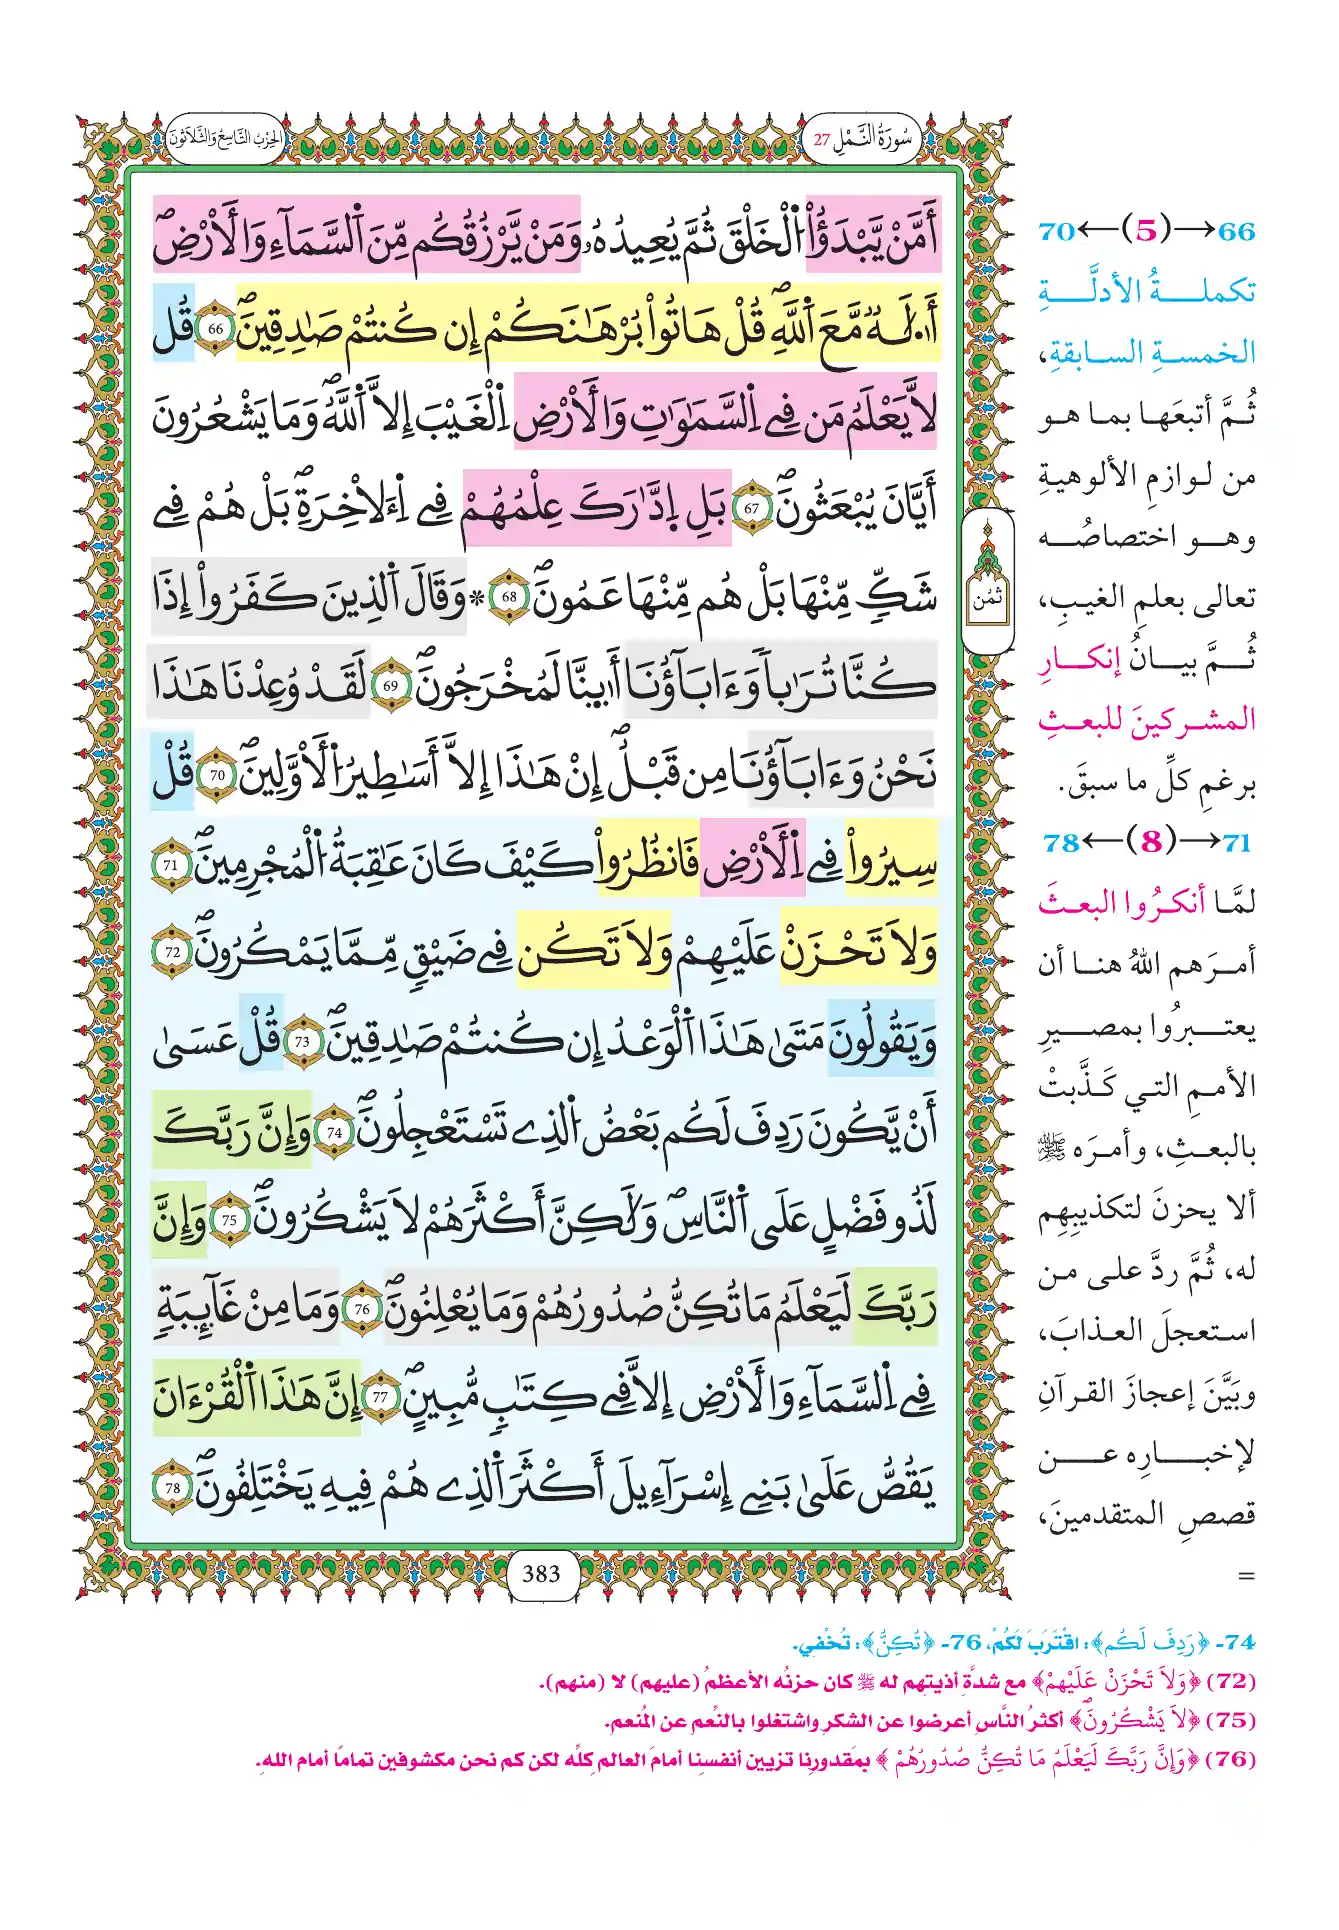 سُورَةُ النَّمْلِ 27
الحِزْبُ التَّاسِعُ وَالثَّلَاثُونَ
أَمَّنْ يَّبْدَؤُاْ اُ۬لْخَلْقَ ثُمَّ يُعِيدُهُۥ وَمَنْ يَّرْزُقُكُم مِّنَ اَ۬لسَّمَآءِ وَالَارْضِۖ
أَ۟لَٰهٞ مَّعَ اَ۬للَّهِۖ قُلْ هَاتُواْ بُرْهَٰنَكُمُۥٓ إِن كُنتُمْ صَٰدِقِينَۖ 66 قُل
لَّا يَعْلَمُ مَن فِے اِ۬لسَّمَٰوَٰتِ وَالَارْضِ اِ۬لْغَيْبَ إِلَّا اَ۬للَّهُۖ وَمَا يَشْعُرُونَ
أَيَّانَ يُبْعَثُونَۖ 67 بَلِ اِ۪دَّٰرَكَ عِلْمُهُمْ فِے اِ۬لَاخِرَةِۖ بَلْ هُمْ فِے
شَكّٖ مِّنْهَا بَلْ هُم مِّنْهَا عَمُونَۖ 68 * وَقَالَ اَ۬لذِينَ كَفَرُوٓاْ إِذَا
كُنَّا تُرَٰباٗ وَءَابَآؤُنَآ أَ۟ىِٕنَّا لَمُخْرَجُونَۖ 69 لَقَدْ وُعِدْنَا هَٰذَا
نَحْنُ وَءَابَآؤُنَا مِن قَبْلُۖ إِنْ هَٰذَآ إِلَّآ أَسَٰطِيرُ اُ۬لَاوَّلِينَۖ 70 قُلْ
سِيرُواْ فِے اِ۬لَارْضِ فَانظُرُواْ كَيْفَ كَانَ عَٰقِبَةُ اُ۬لْمُجْرِمِينَۖ 71
وَلَا تَحْزَنْ عَلَيْهِمْ وَلَا تَكُن فِے ضَيْقٖ مِّمَّا يَمْكُرُونَۖ 72
وَيَقُولُونَ مَتَىٰ هَٰذَا اَ۬لْوَعْدُ إِن كُنتُمْ صَٰدِقِينَۖ 73 قُلْ عَسَىٰٓ
أَنْ يَّكُونَ رَدِفَ لَكُم بَعْضُ اُ۬لذِے تَسْتَعْجِلُونَۖ 74 وَإِنَّ رَبَّكَ
لَذُو فَضْلٍ عَلَى اَ۬لنَّاسِۖ وَلَٰكِنَّ أَكْثَرَهُمْ لَا يَشْكُرُونَۖ 75 وَإِنَّ
رَبَّكَ لَيَعْلَمُ مَا تُكِنُّ صُدُورُهُمْ وَمَا يُعْلِنُونَۖ 76 وَمَا مِنْ غَآئِبَةٖ
فِے اِ۬لسَّمَآءِ وَالَارْضِ إِلَّا فِے كِتَٰبٖ مُّبِينٍۖ 77 اِنَّ هَٰذَا اَ۬لْقُرْءَانَ
يَقُصُّ عَلَىٰ بَنِےٓ إِسْرَآءِيلَ أَكْثَرَ اَ۬لذِے هُمْ فِيهِ يَخْتَلِفُونَۖ 78
ثُمُن
383
66→(5)←70
تكملةُ الأدلَّةِ
الخمسةِ السابقةِ،
ثُمَّ أتبعَها بما هو
من لوازمِ الألوهيةِ
وهو اختصاصُه
تعالى بعلمِ الغيبِ،
ثُمَّ بيانُ إنكارِ
المشركينَ للبعثِ
برغمِ كلِّ ما سبقَ.
71→(8)←78
لمَّا أنكرُوا البعثَ
أمرَهم اللهُ هنا أن
يعتبرُوا بمصيرِ
الأممِ التي كَذَّبتْ
بالبعثِ، وأمرَه ﷺ
ألا يحزنَ لتكذيبِهِم
له، ثُمَّ ردَّ على من
استعجلَ العذابَ،
وبَيَّنَ إعجازَ القرآنِ
لإخبارِه عن
قصصِ المتقدمينَ،
=
74- ﴿رَدِفَ لَكُم﴾: اقْتَرَبَ لَكُمْ، 76- ﴿تُكِنُّ﴾: تُخْفِي.
(72) ﴿وَلَا تَحْزَنْ عَلَيْهِمْ﴾ مع شدَّةِ أذيتِهم له ﷺ كان حزنُه الأعظمُ (عليهم) لا (منهم).
(75) ﴿لَا يَشْكُرُونَۖ﴾ أكثرُ النَّاسِ أعرضوا عن الشكرِ واشتغلوا بالنِّعم عن المُنعم.
(76) ﴿وَإِنَّ رَبَّكَ لَيَعْلَمُ مَا تُكِنُّ صُدُورُهُمْ﴾ بمقدورِنا تزيين أنفسِنا أمامَ العالم كلِّه لكن كم نحن مكشوفين تمامًا أمام الله.